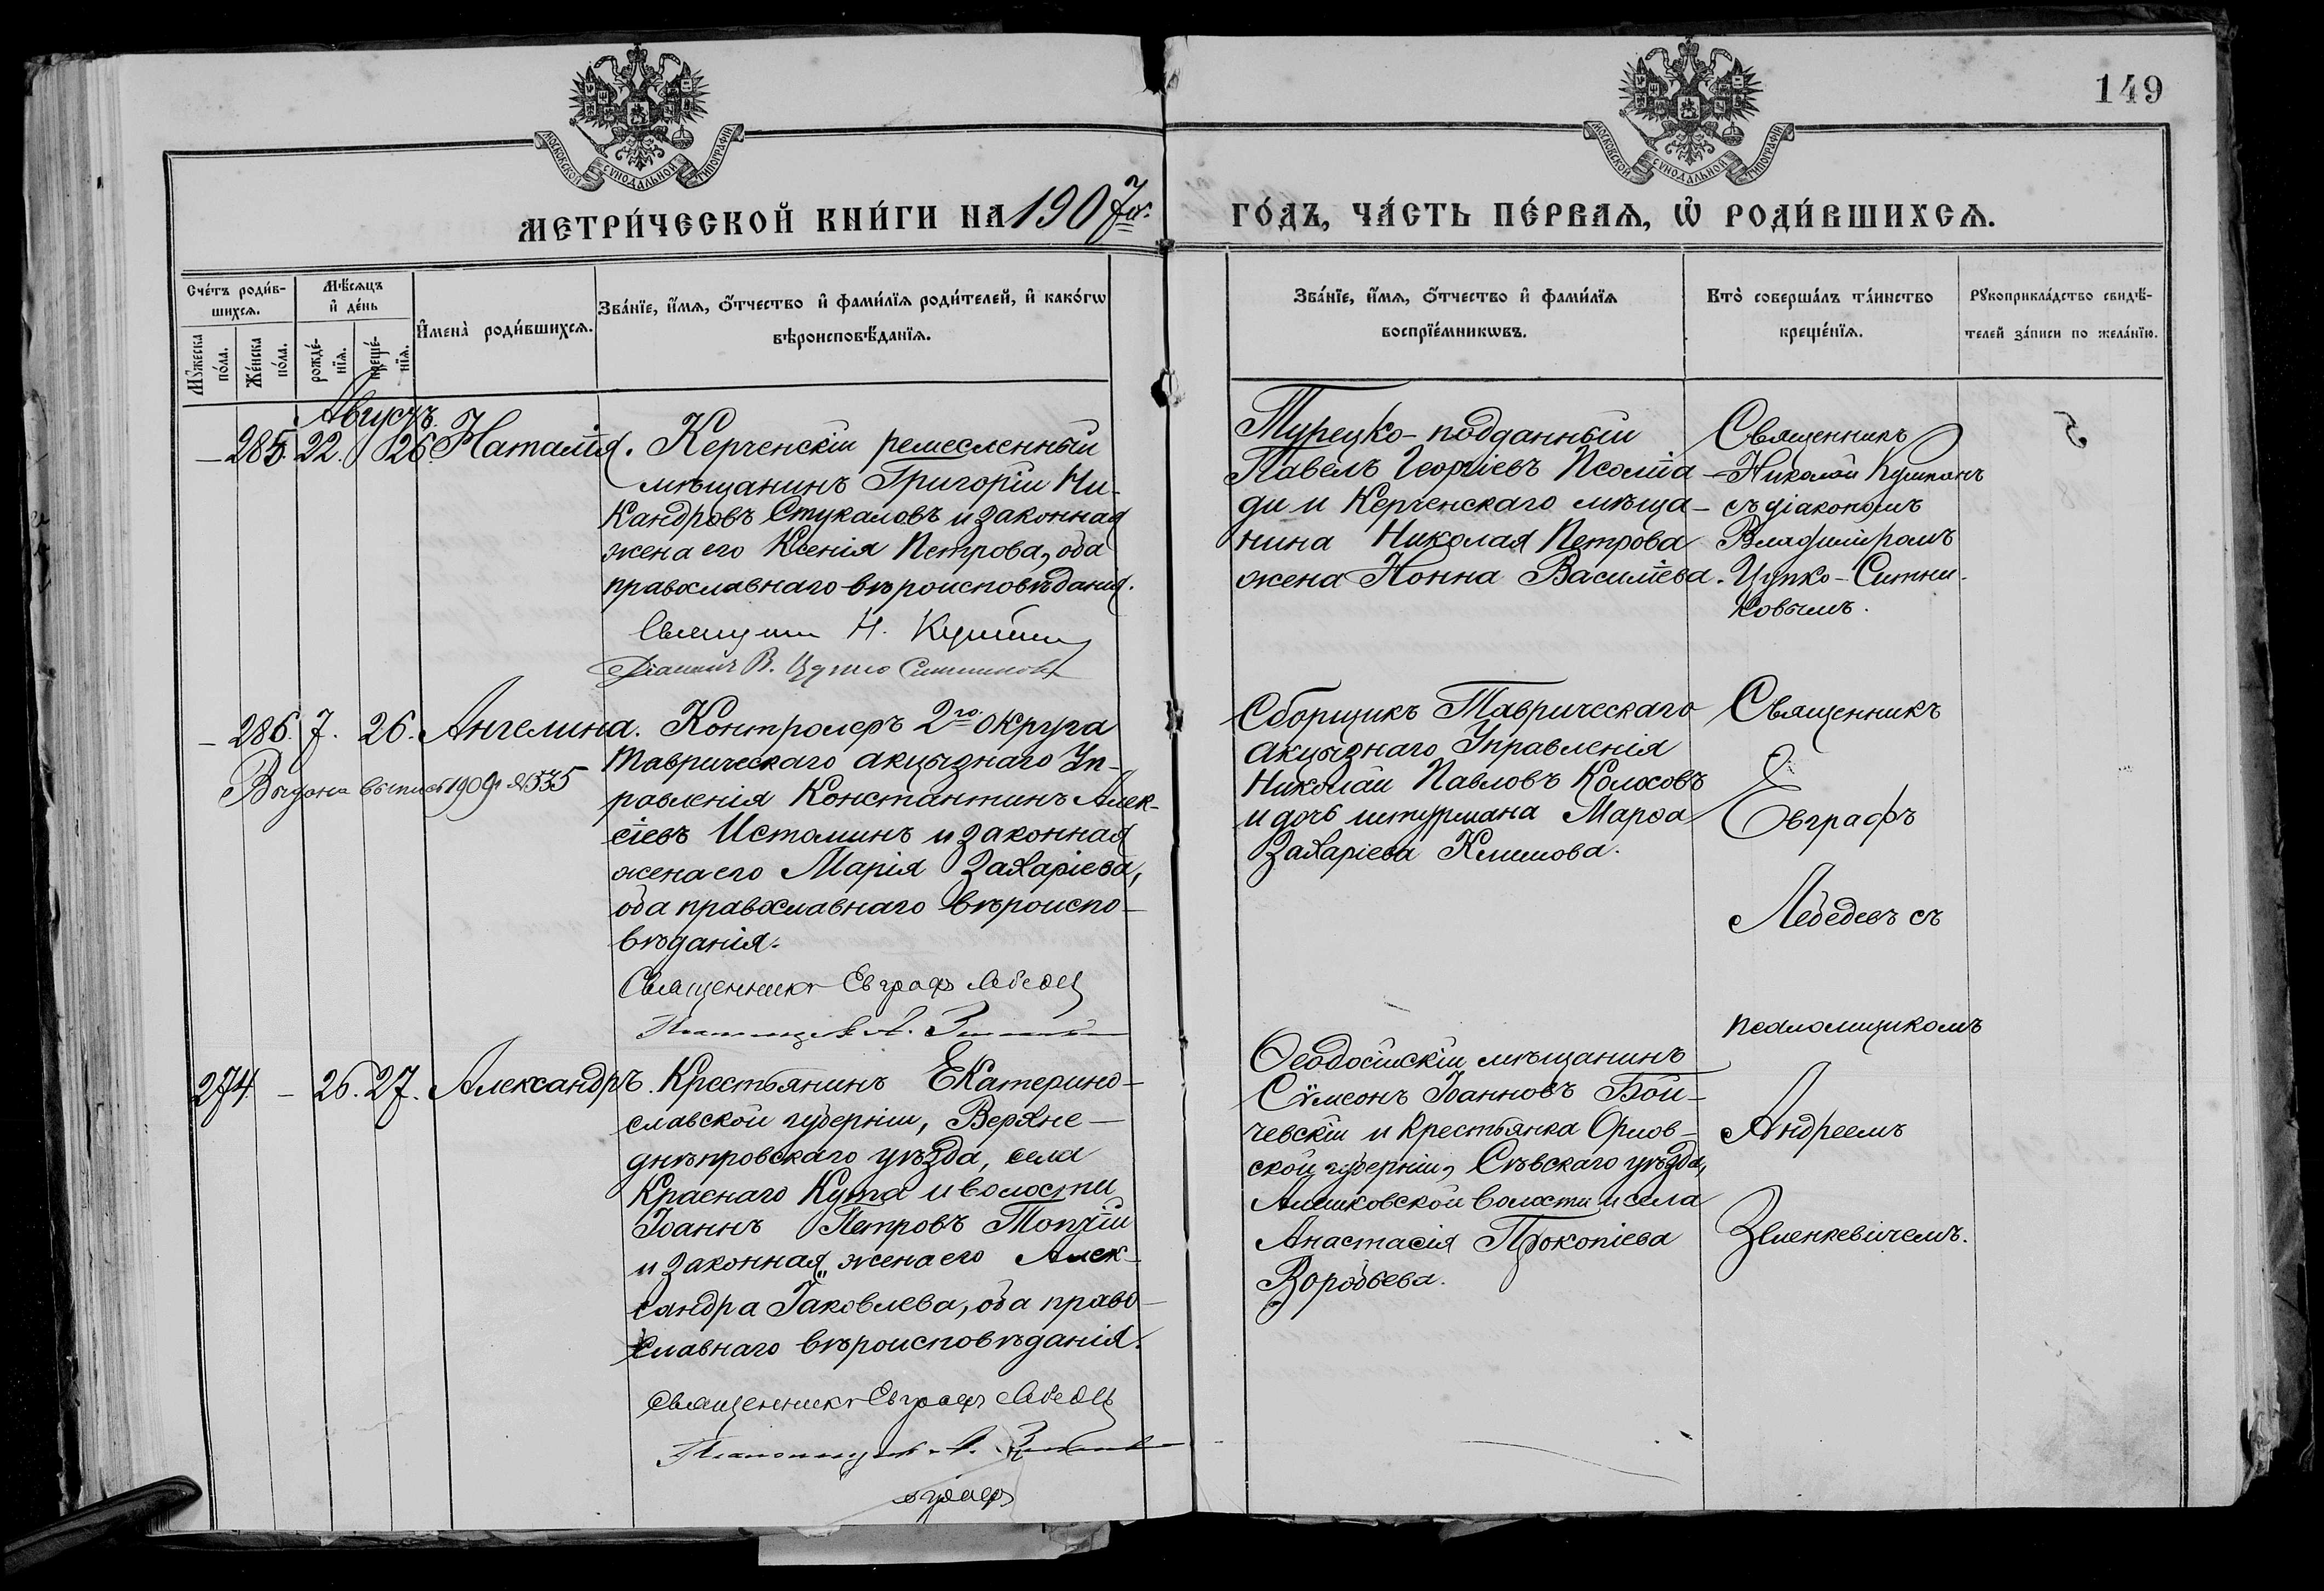 149
МОСКОВСКОЙ СѴНОДАЛЬНОЙ ТИПОГРАФІИ
МОСКОВСКОЙ СѴНОДАЛЬНОЙ ТИПОГРАФІИ
МЕТРИ́ЧЕСКОЙ КНИ́ГИ НА 1907й.
ГО́ДЪ, ЧА́СТЬ ПЕ́РВАѦ, Ѡ҆ РОДИ́ВШИХСѦ.
Сче́тъ роди́в-
шихсѧ.
Мꙋ́жеска по́ла.
Же́нска по́ла.
Мѣ́сѧцъ
и҆ де́нь
рожде́-
нїѧ.
креще́-
нїѧ.
И҆мена̀ роди́вшихсѧ.
Зва́нїе, и҆́мѧ, ѻ҆́тчество и҆ фами́лїѧ роди́телей, и҆ како́гѡ
вѣроисповѣ́данїѧ.
Зва́нїе, и҆́мѧ, ѻ҆́тчество и҆ фами́лїѧ
воспрїе́мникѡвъ.
Кто̀ соверша́лъ та́инство
креще́нїѧ.
Рꙋкоприкла́дство свидѣ́-
телей за́писи по жела́нїю.
Августъ.
— 285. 22. 26. Наталія.
Керченскій ремесленный
мѣщанинъ Григорій Ни-
кандровъ Стукаловъ и законная
жена его Ксенія Петрова, оба
православнаго вѣроисповѣданія.
Священникъ Н. Кушкинъ
Діаконъ В. Цупко Ситниковъ
Турецко-подданный
Павелъ Георгіевъ Псоміа-
ди и Керченскаго мѣща-
нина Николая Петрова
жена Нонна Василіева.
Священникъ
Николай
съ діакономъ
Владиміромъ
Цупко-Ситни-
ковымъ.
— 286. 7. 26. Ангелина.
Выдана выпись 1909 г. № 535
Контролеръ 2го округа
Таврическаго акцызнаго Уп-
равленія Константинъ Алек-
сіевъ Истоминъ и законная
жена его Марія Захаріева,
оба православнаго вѣроиспо-
вѣданія.
Священникъ Евграфъ Лебедевъ
Сборщикъ Таврическаго
акцызнаго Управленія
Николай Павловъ Колосовъ
и дочь штурмана Марѳа
Захаріева Климова.
Священникъ
Евграфъ
Лебедевъ съ
псаломщикомъ
Андреемъ
Зменкевичемъ.
274. — 26. 27. Александръ.
Крестьянинъ Екатерино-
славской губерніи, Верхне-
днѣпровскаго уѣзда, села
Краснаго Кута и волости
Іоаннъ Петровъ Топчій
и законная жена его Алек-
сандра Іаковлева, оба право-
славнаго вѣроисповѣданія.
Священникъ Евграфъ Лебедевъ
Ѳеодосійскій мѣщанинъ
Сѵмеонъ Іоанновъ Бой-
чевскій и крестьянка Орлов-
ской губерніи, Сѣвскаго уѣзда,
Алешковской волости и села
Анастасія Прокопіева
Воробьева.